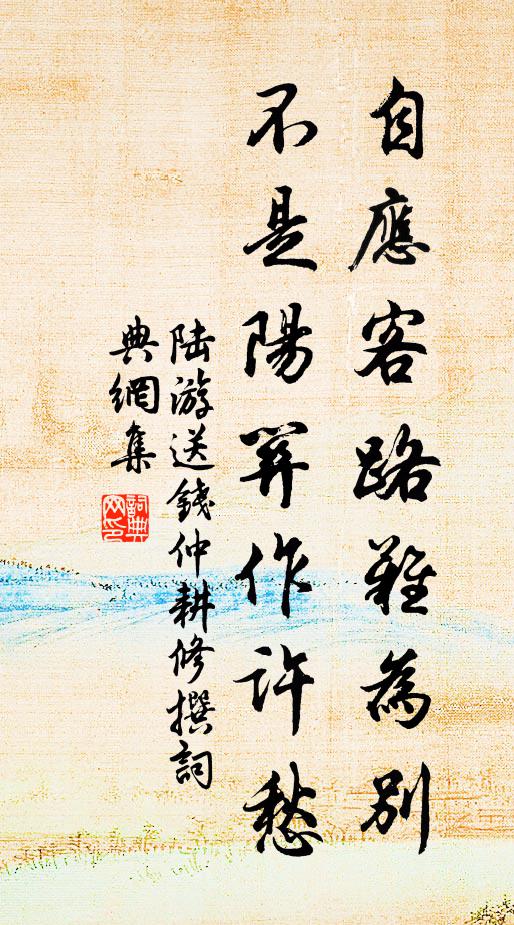 自應客路難為別
不是陽關作許愁
陸游送錢仲耕修撰詞
典網集
詞典網印